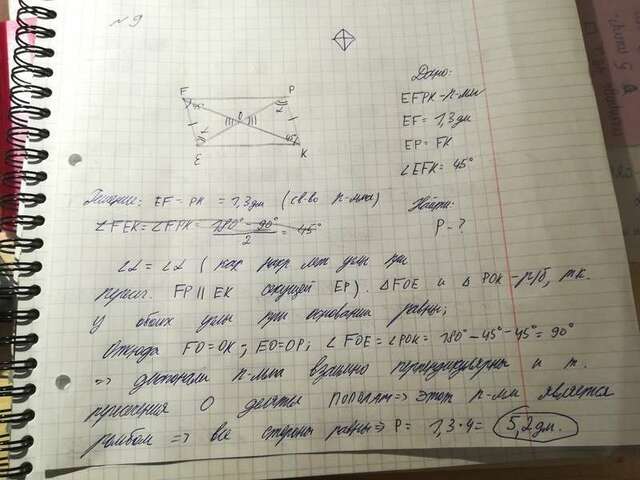 №9
F P
45°
α
O
α
45°
E K
Дано:
EFPK - п-мм
EF = 1,3 дм
EP = FK
∠EFK = 45°
Найти:
P - ?
Решение: EF = PK = 1,3 дм (св-во п-мма)
∠FEK = ∠FPK = 180° - 90° / 2 = 45°
∠α = ∠α ( углы при
пересеч. FP || EK секущей EP). △FOE и △POK - р/б, т.к.
у обоих углы при основании равны;
Отсюда FO = OK; EO = OP; ∠FOE = ∠POK = 180° - 45° - 45° = 90°
=> диагонали п-мма взаимно перпендикулярны и т.
пересечения O делятся пополам => этот п-мм является
ромбом => все стороны равны => P = 1,3 · 4 = 5,2 дм.